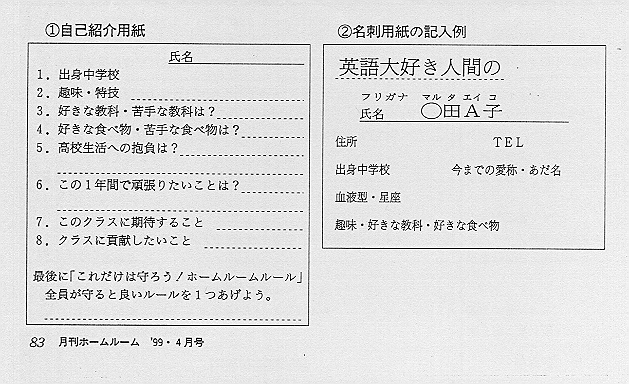 ①自己紹介用紙
氏名
1．出身中学校
2．趣味・特技
3．好きな教科・苦手な教科は？
4．好きな食べ物・苦手な食べ物は？
5．高校生活への抱負は？
6．この1年間で頑張りたいことは？
7．このクラスに期待すること
8．クラスに貢献したいこと
最後に「これだけは守ろう！ホームルームルール」
全員が守ると良いルールを1つあげよう。
②名刺用紙の記入例
英語大好き人間の
フリガナ マル タ エイ コ
氏名 〇田A子
住所 TEL
出身中学校 今までの愛称・あだ名
血液型・星座
趣味・好きな教科・好きな食べ物
83 月刊ホームルーム '99・4月号